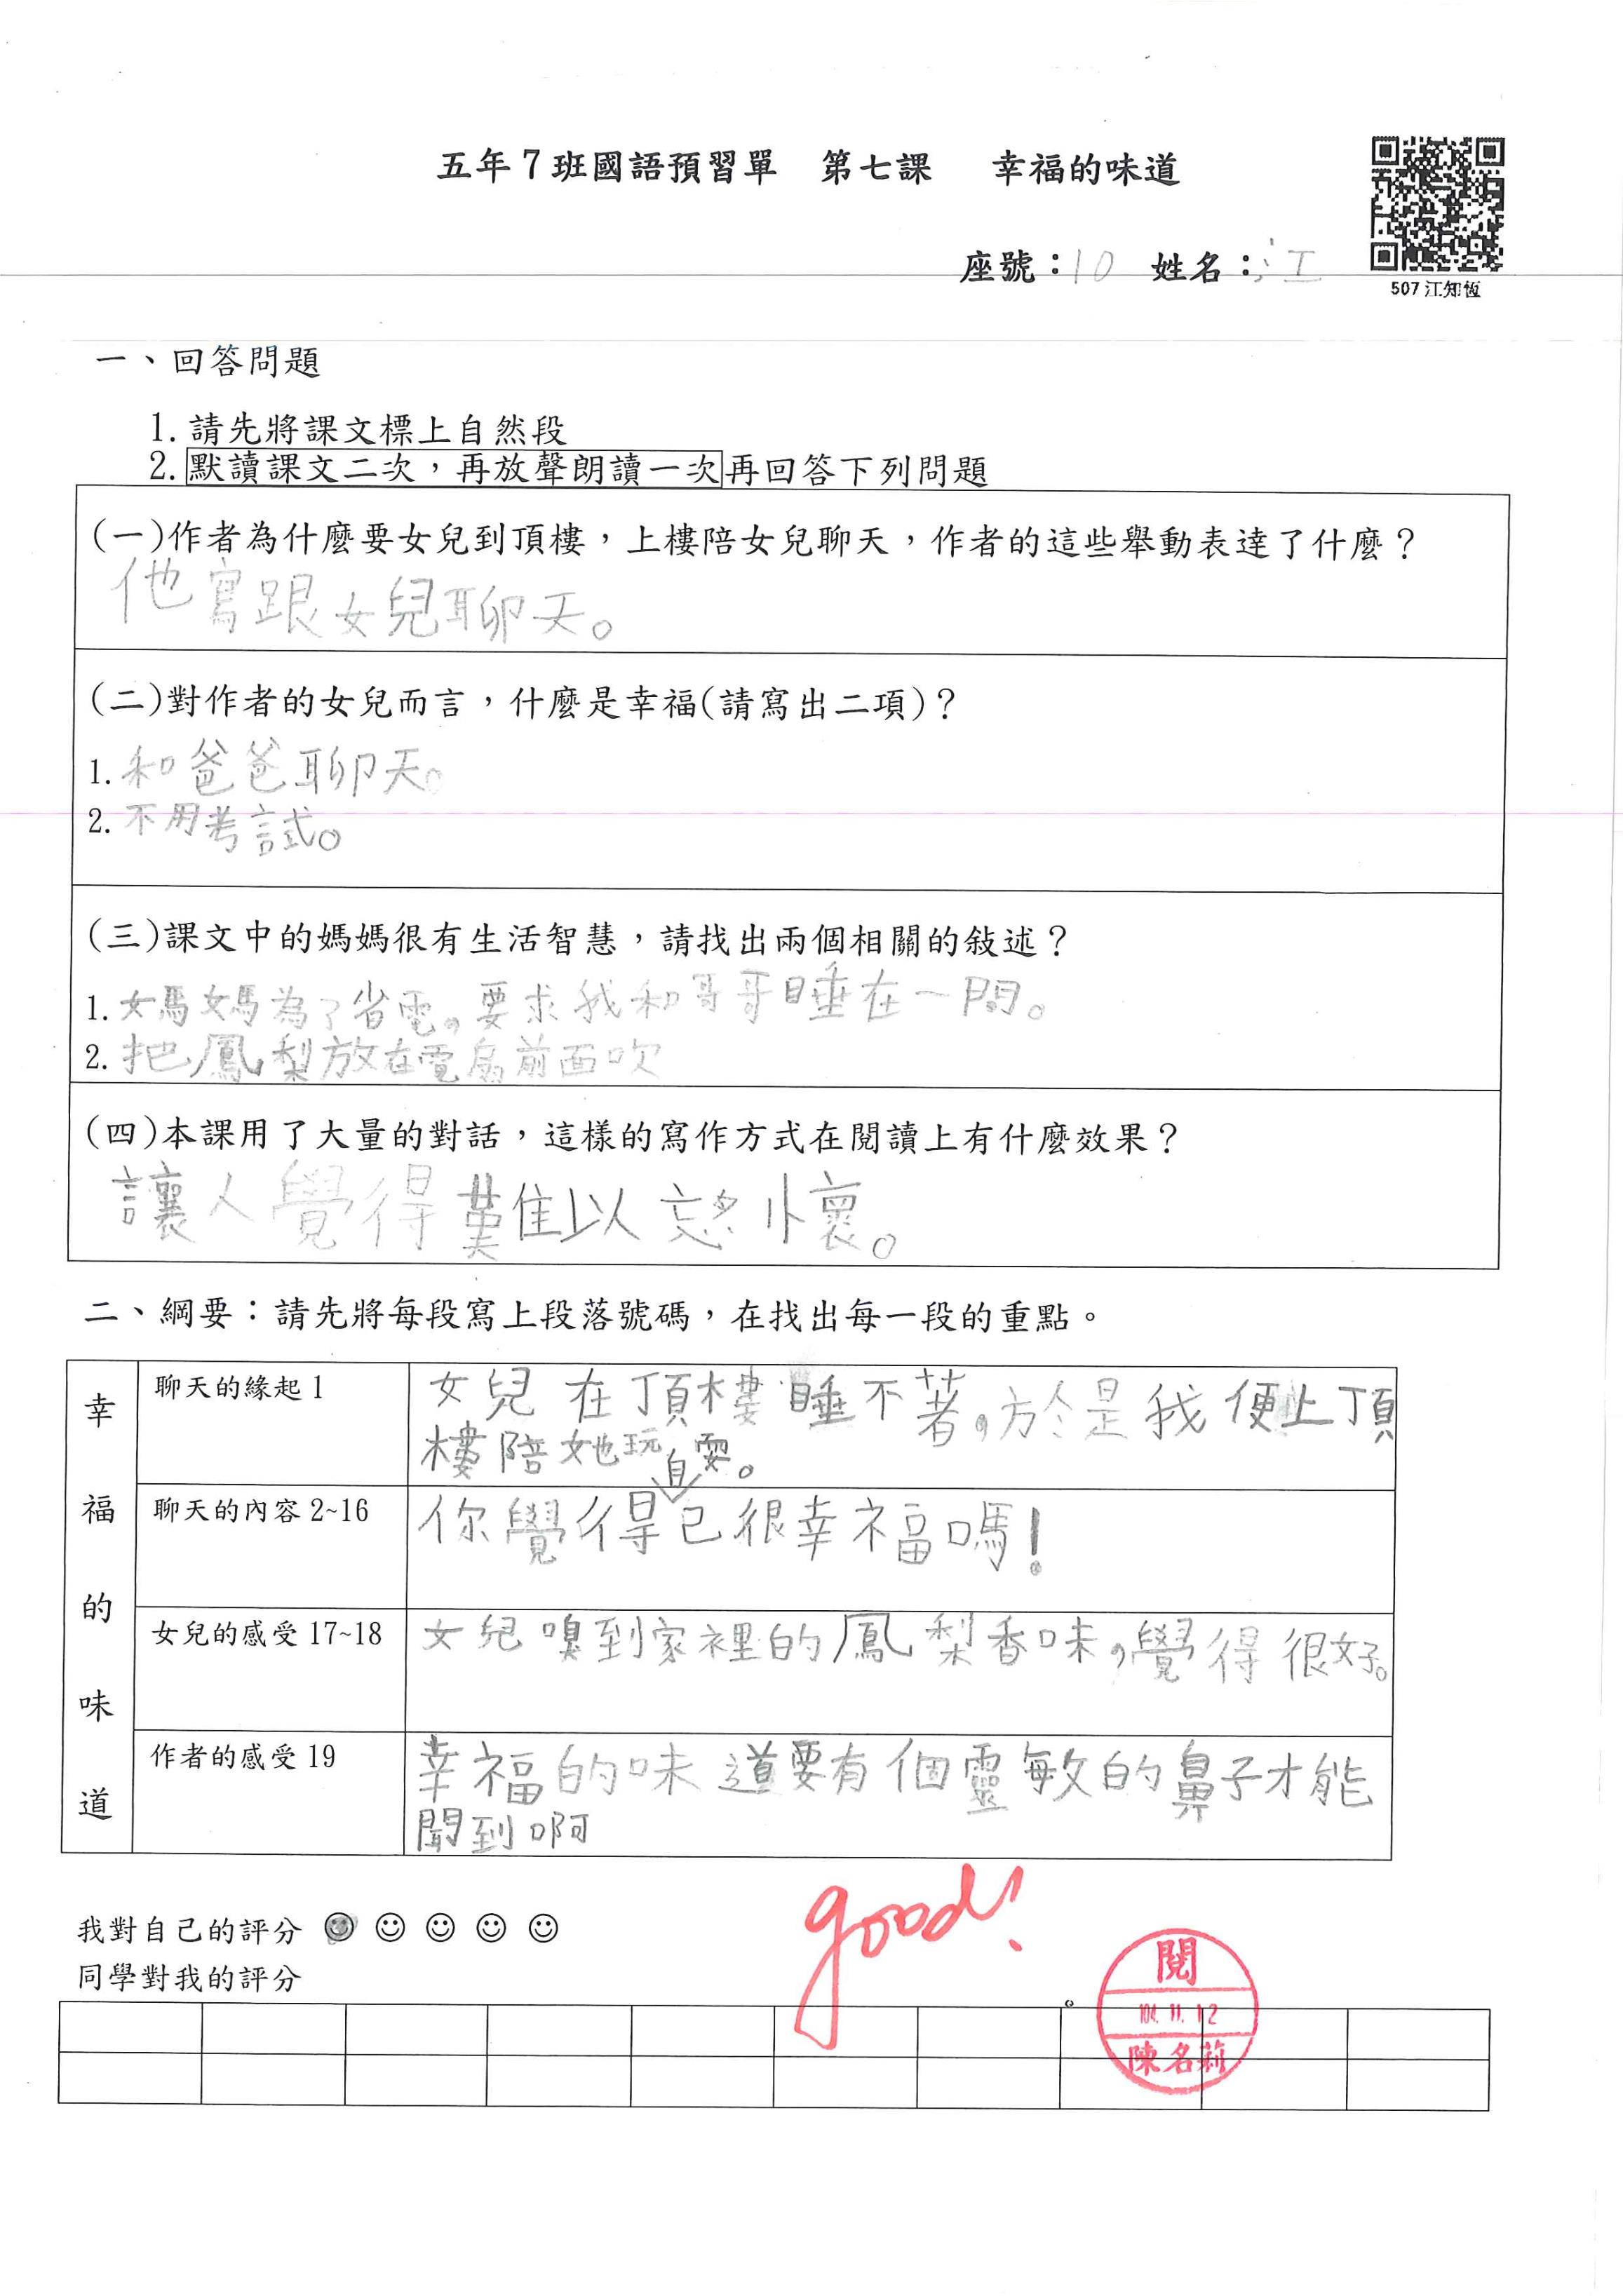 五年7班國語預習單 第七課 幸福的味道
座號:10 姓名:江
507 江知恆
一、回答問題
1.請先將課文標上自然段
2.默讀課文二次,再放聲朗讀一次再回答下列問題
(一)作者為什麼要女兒到頂樓,上樓陪女兒聊天,作者的這些舉動表達了什麼?
他寫跟女兒聊天。
(二)對作者的女兒而言,什麼是幸福(請寫出二項)?
1.和爸爸聊天。
2.不用考試。
(三)課文中的媽媽很有生活智慧,請找出兩個相關的敍述?
1.媽媽為了省電,要求我和哥哥睡在一間。
2.把鳳梨放在電扇前面吹
(四)本課用了大量的對話,這樣的寫作方式在閱讀上有什麼效果?
讓人覺得難以忘懷。
二、綱要:請先將每段寫上段落號碼,在找出每一段的重點。
幸福的味道
聊天的緣起1
女兒在頂樓睡不著,於是我便上頂
樓陪她玩耍。
聊天的內容2~16
你覺得自己很幸福嗎!
女兒的感受17~18
女兒嗅到家裡的鳳梨香味,覺得很好。
作者的感受19
幸福的味道要有個靈敏的鼻子才能
聞到啊
我對自己的評分 ☺ ☺ ☺ ☺ ☺
同學對我的評分
good!
閱
104.11.12
陳名莉